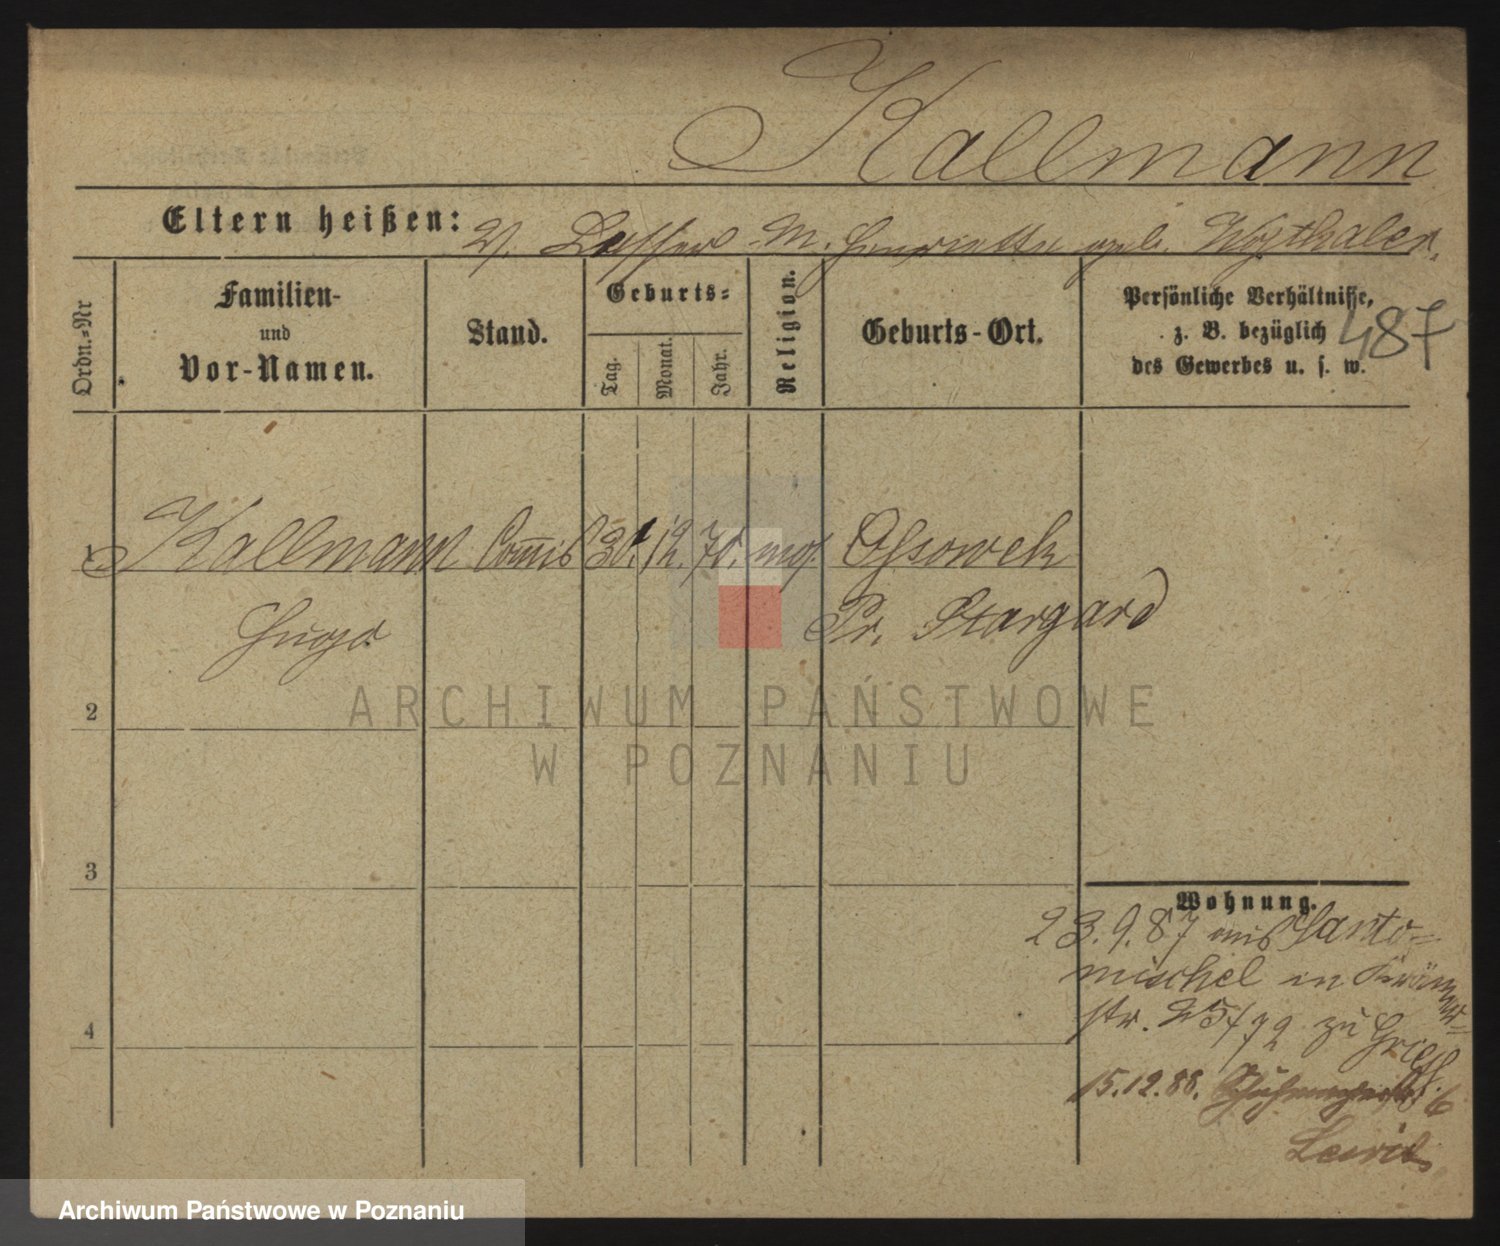 Kallmann
Eltern heißen: V. M. Henriette geb. Wojthaler.
Ordn.-Nr
Familien-
und
Vor-Namen.
Stand.
Geburts-
Tag.
Monat.
Jahr.
Religion.
Geburts-Ort.
Persönliche Verhältnisse,
z. B. bezüglich
des Gewerbes u. s. w.
487
1 Kallmann Commis 30. 12. 70. mos. Ossowek
Hugo Pr. Stargard
2
3
4
Wohnung.
23.9.87 aus Santo-
mischel in Krämer-
str. 25/72 zu
15.12.88. Schuhmacherstr. 6
Lewin
ARCHIWUM PAŃSTWOWE
W POZNANIU
Archiwum Państwowe w Poznaniu